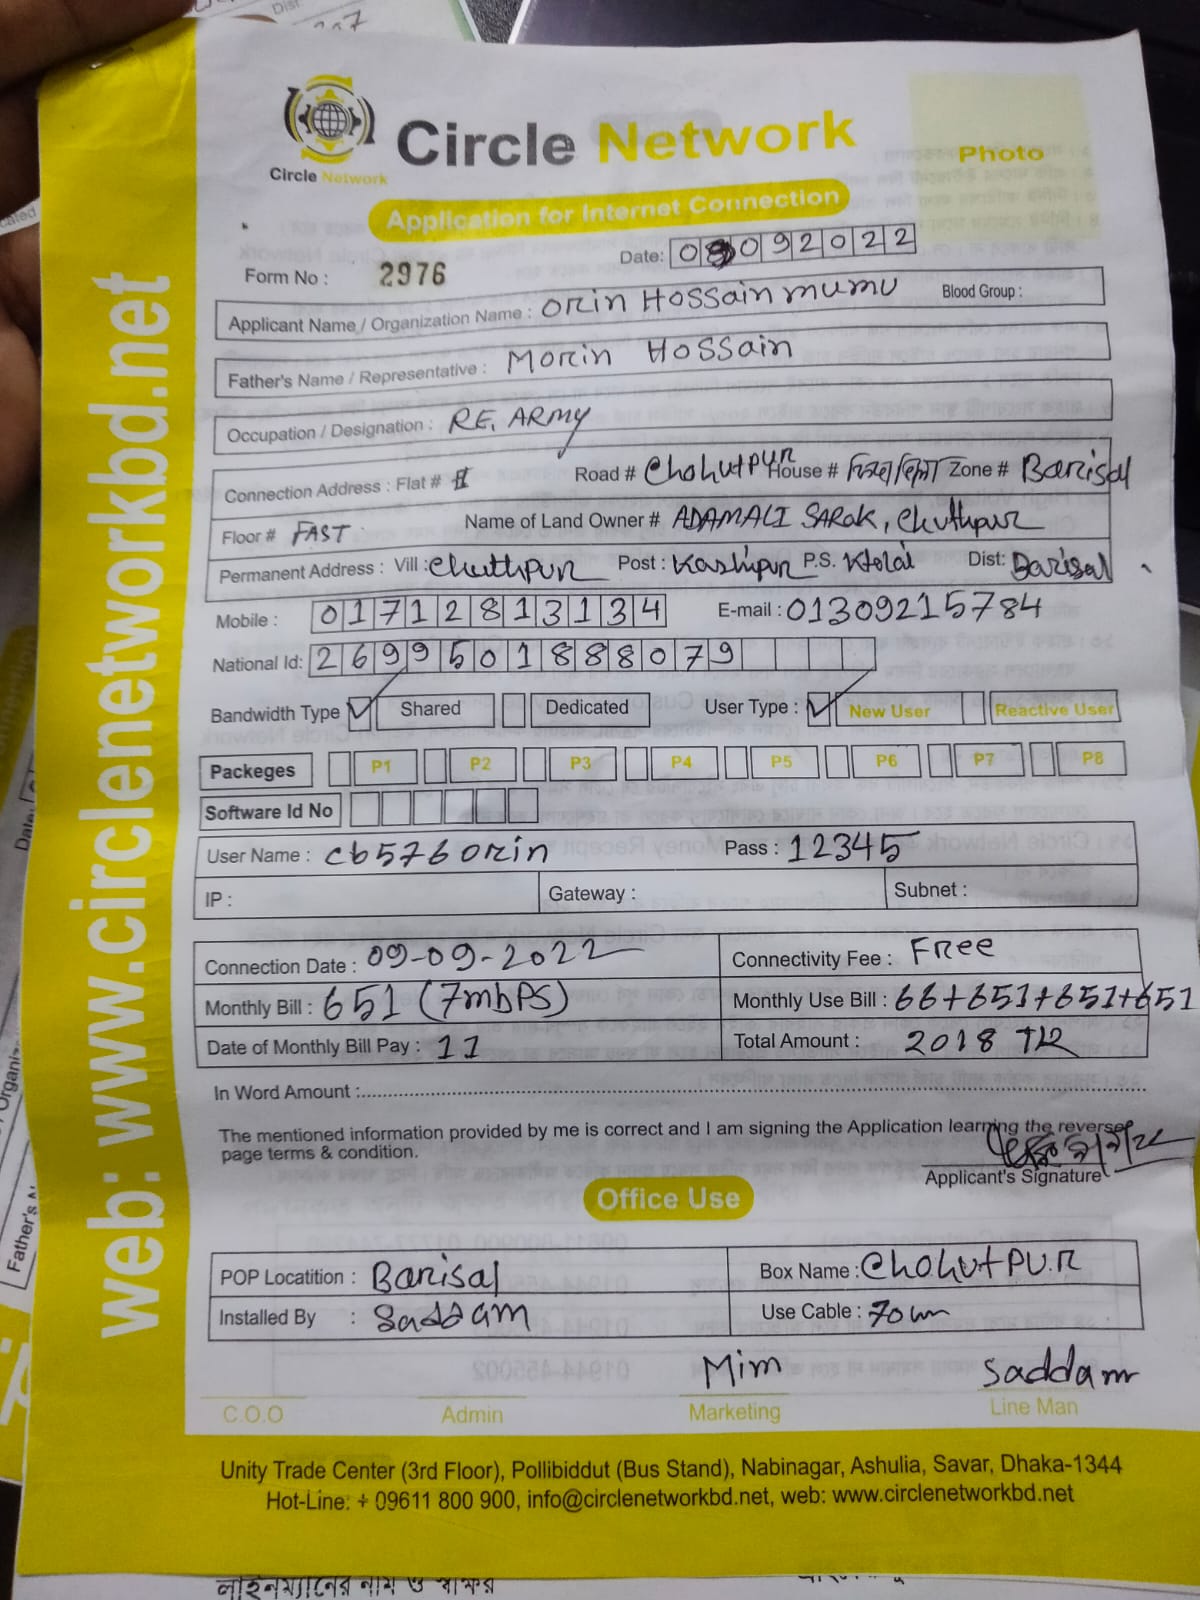 Circle Network
Circle Network
Photo
Application for Internet Connection
Form No : 2976
Date: 09092022
Applicant Name / Organization Name : Orin Hossain mumu Blood Group :
Father's Name / Representative : Morin Hossain
Occupation / Designation : RE. ARMY
Connection Address : Flat # Road # Chohutpur House # Zone # Barisal
Floor # FAST Name of Land Owner # ADAMALI SARak, Chuthpur
Permanent Address : Vill : Chuthpur Post : Kashipur P.S. Dist: Barisal
Mobile : 01712813134 E-mail : 01309215784
National Id: 2699501888079
Bandwidth Type Shared Dedicated User Type : New User Reactive User
Packeges P1 P2 P3 P4 P5 P6 P7 P8
Software Id No
User Name : cb576orin Pass : 12345
IP : Gateway : Subnet :
Connection Date : 09-09-2022 Connectivity Fee : Free
Monthly Bill : 651 (7mbPS) Monthly Use Bill : 66+651+651+651
Date of Monthly Bill Pay : 11 Total Amount : 2018 TK
In Word Amount :
The mentioned information provided by me is correct and I am signing the Application learning the reverse
page terms & condition.
Applicant's Signature
Office Use
POP Locatition : Barisal Box Name : Chohutpur
Installed By : Saddam Use Cable : 70
Mim Saddam
C.O.O Admin Marketing Line Man
Unity Trade Center (3rd Floor), Pollibiddut (Bus Stand), Nabinagar, Ashulia, Savar, Dhaka-1344
Hot-Line: + 09611 800 900, info@circlenetworkbd.net, web: www.circlenetworkbd.net
web: www.circlenetworkbd.net
লাইনম্যানের নাম ও স্বাক্ষর